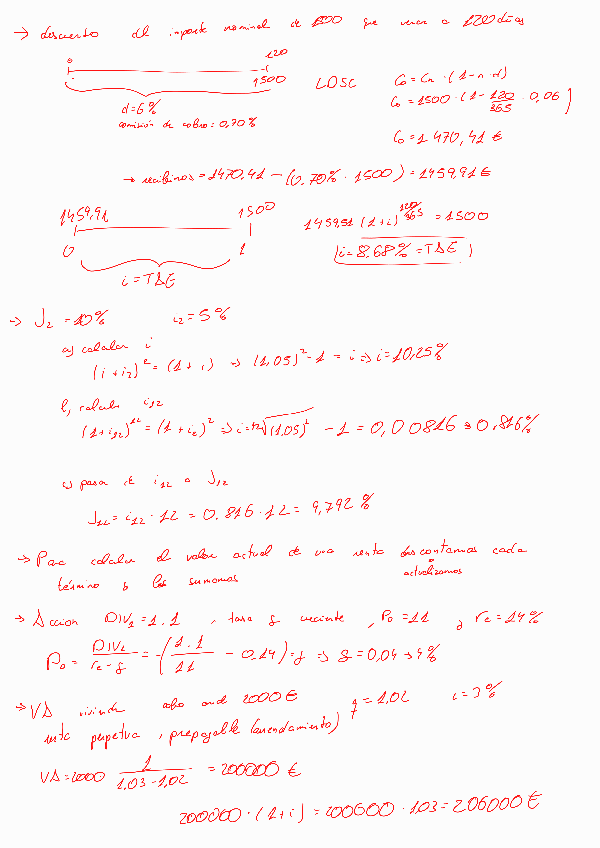 → descuento del importe nominal de 1500 que vence a 120 días
0 120
1500
d=6%
comisión de cobro: 0,70%
LDSC
C₀ = Cn · (1-n·d)
C₀ = 1500 · (1 - 120/365 · 0,06)
C₀ = 1470,41 €
→ recibimos = 1470,41 - (0.70% · 1500) = 1459,91 €
1459,91 1500
0 1
i = TAE
1459,91 (1+i)^120/365 = 1500
i = 8.68% = TAE
→ J₂ = 10% i₂ = 5%
a) calcular i
(1+i₂)² = (1+i) → (1,05)² - 1 = i → i = 10,25%
b) calcular i₁₂
(1+i₁₂)¹² = (1+i₂)² → i = ¹²√(1.05)² - 1 = 0,00816 → 0,816%
c) pasar de i₁₂ a J₁₂
J₁₂ = i₁₂ · 12 = 0.816 · 12 = 9,792 %
→ Para calcular el valor actual de una renta descontamos cada
o actualizamos
término y los sumamos
→ Accion DIV₁ = 1.1 , tasa g creciente , P₀ = 11 y re = 14%
P₀ = DIV₁/(re - g) = -(1.1/11 - 0.14) = g → g = 0,04 → 4%
→ VA vivienda cobro anual 2000 € q = 1,02 i = 3%
renta perpetua , prepagable (arrendamiento)
VA = 2000 1/(1.03 - 1.02) = 200000 €
200000 · (1+i) = 200000 · 1.03 = 206000 €